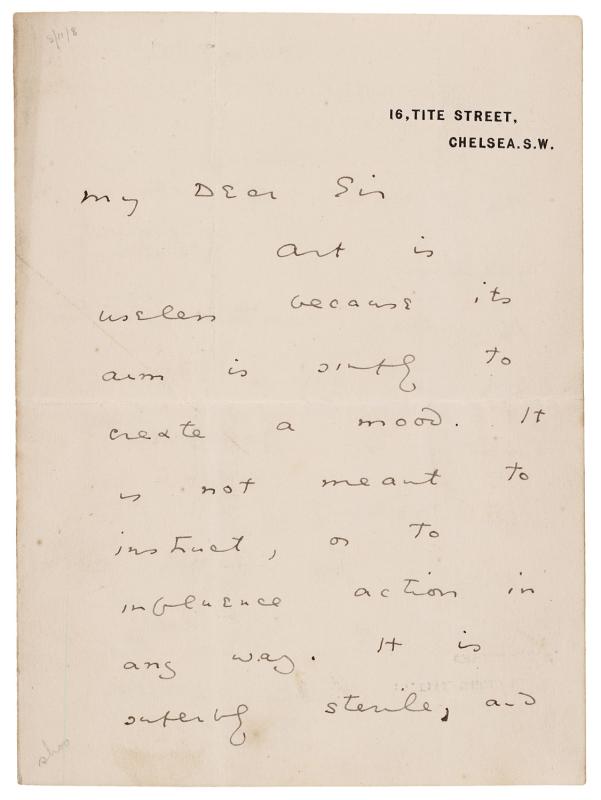 16, TITE STREET,
CHELSEA. S.W.
My Dear Sir
Art is
useless because its
aim is simply to
create a mood. It
is not meant to
instruct, or to
influence action in
any way. It is
superbly sterile, and